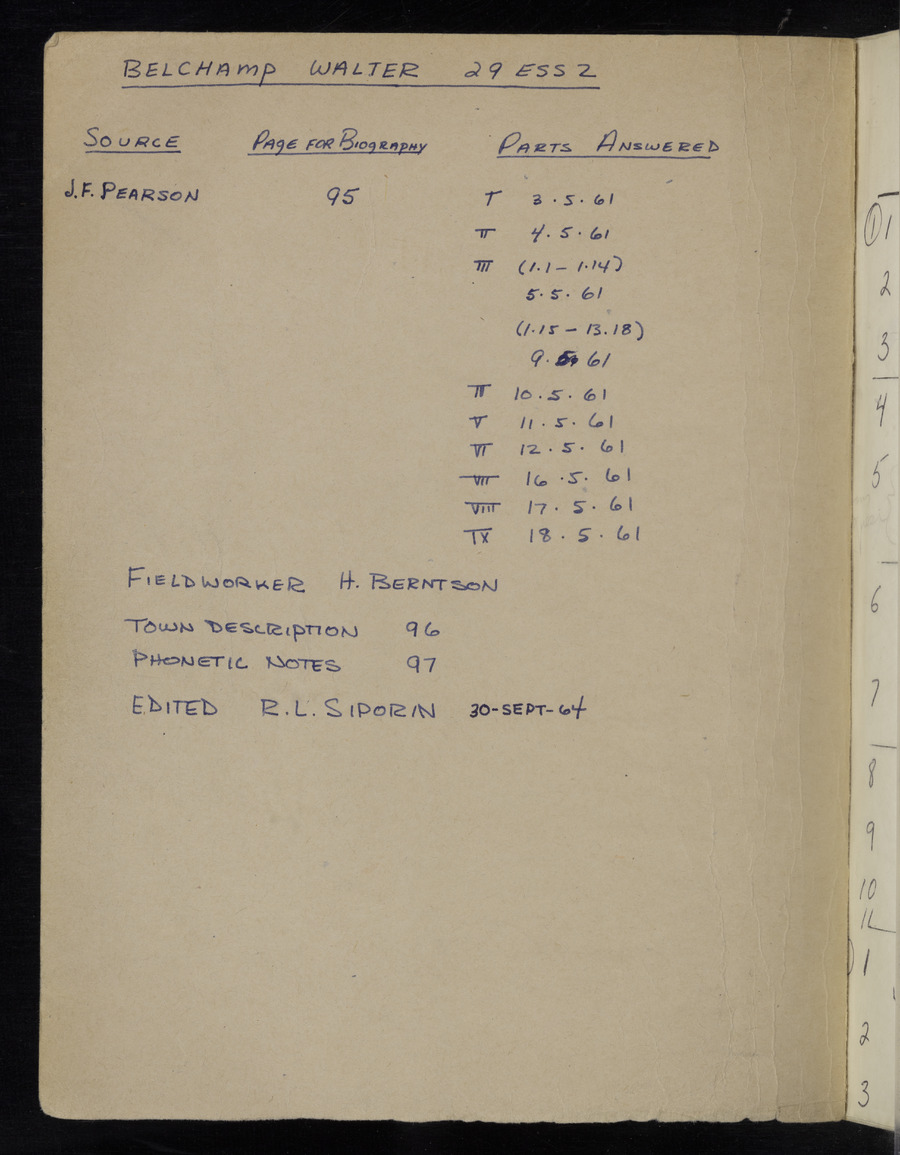 BELCHAMP WALTER 29 ESS 2
SOURCE PAGE FOR BIOGRAPHY PARTS ANSWERED
J.F. PEARSON 95 I 3.5.61
II 4.5.61
III (1.1 – 1.14)
5.5.61
(1.15 – 13.18)
9.5.61
IV 10.5.61
V 11.5.61
VI 12.5.61
VII 16.5.61
VIII 17.5.61
IX 18.5.61
FIELDWORKER H. BERNTSON
TOWN DESCRIPTION 96
PHONETIC NOTES 97
EDITED R.L. SIPORIN 30-SEPT-64
① 1
2
3
4
5
6
7
8
9
10
11
1
2
3